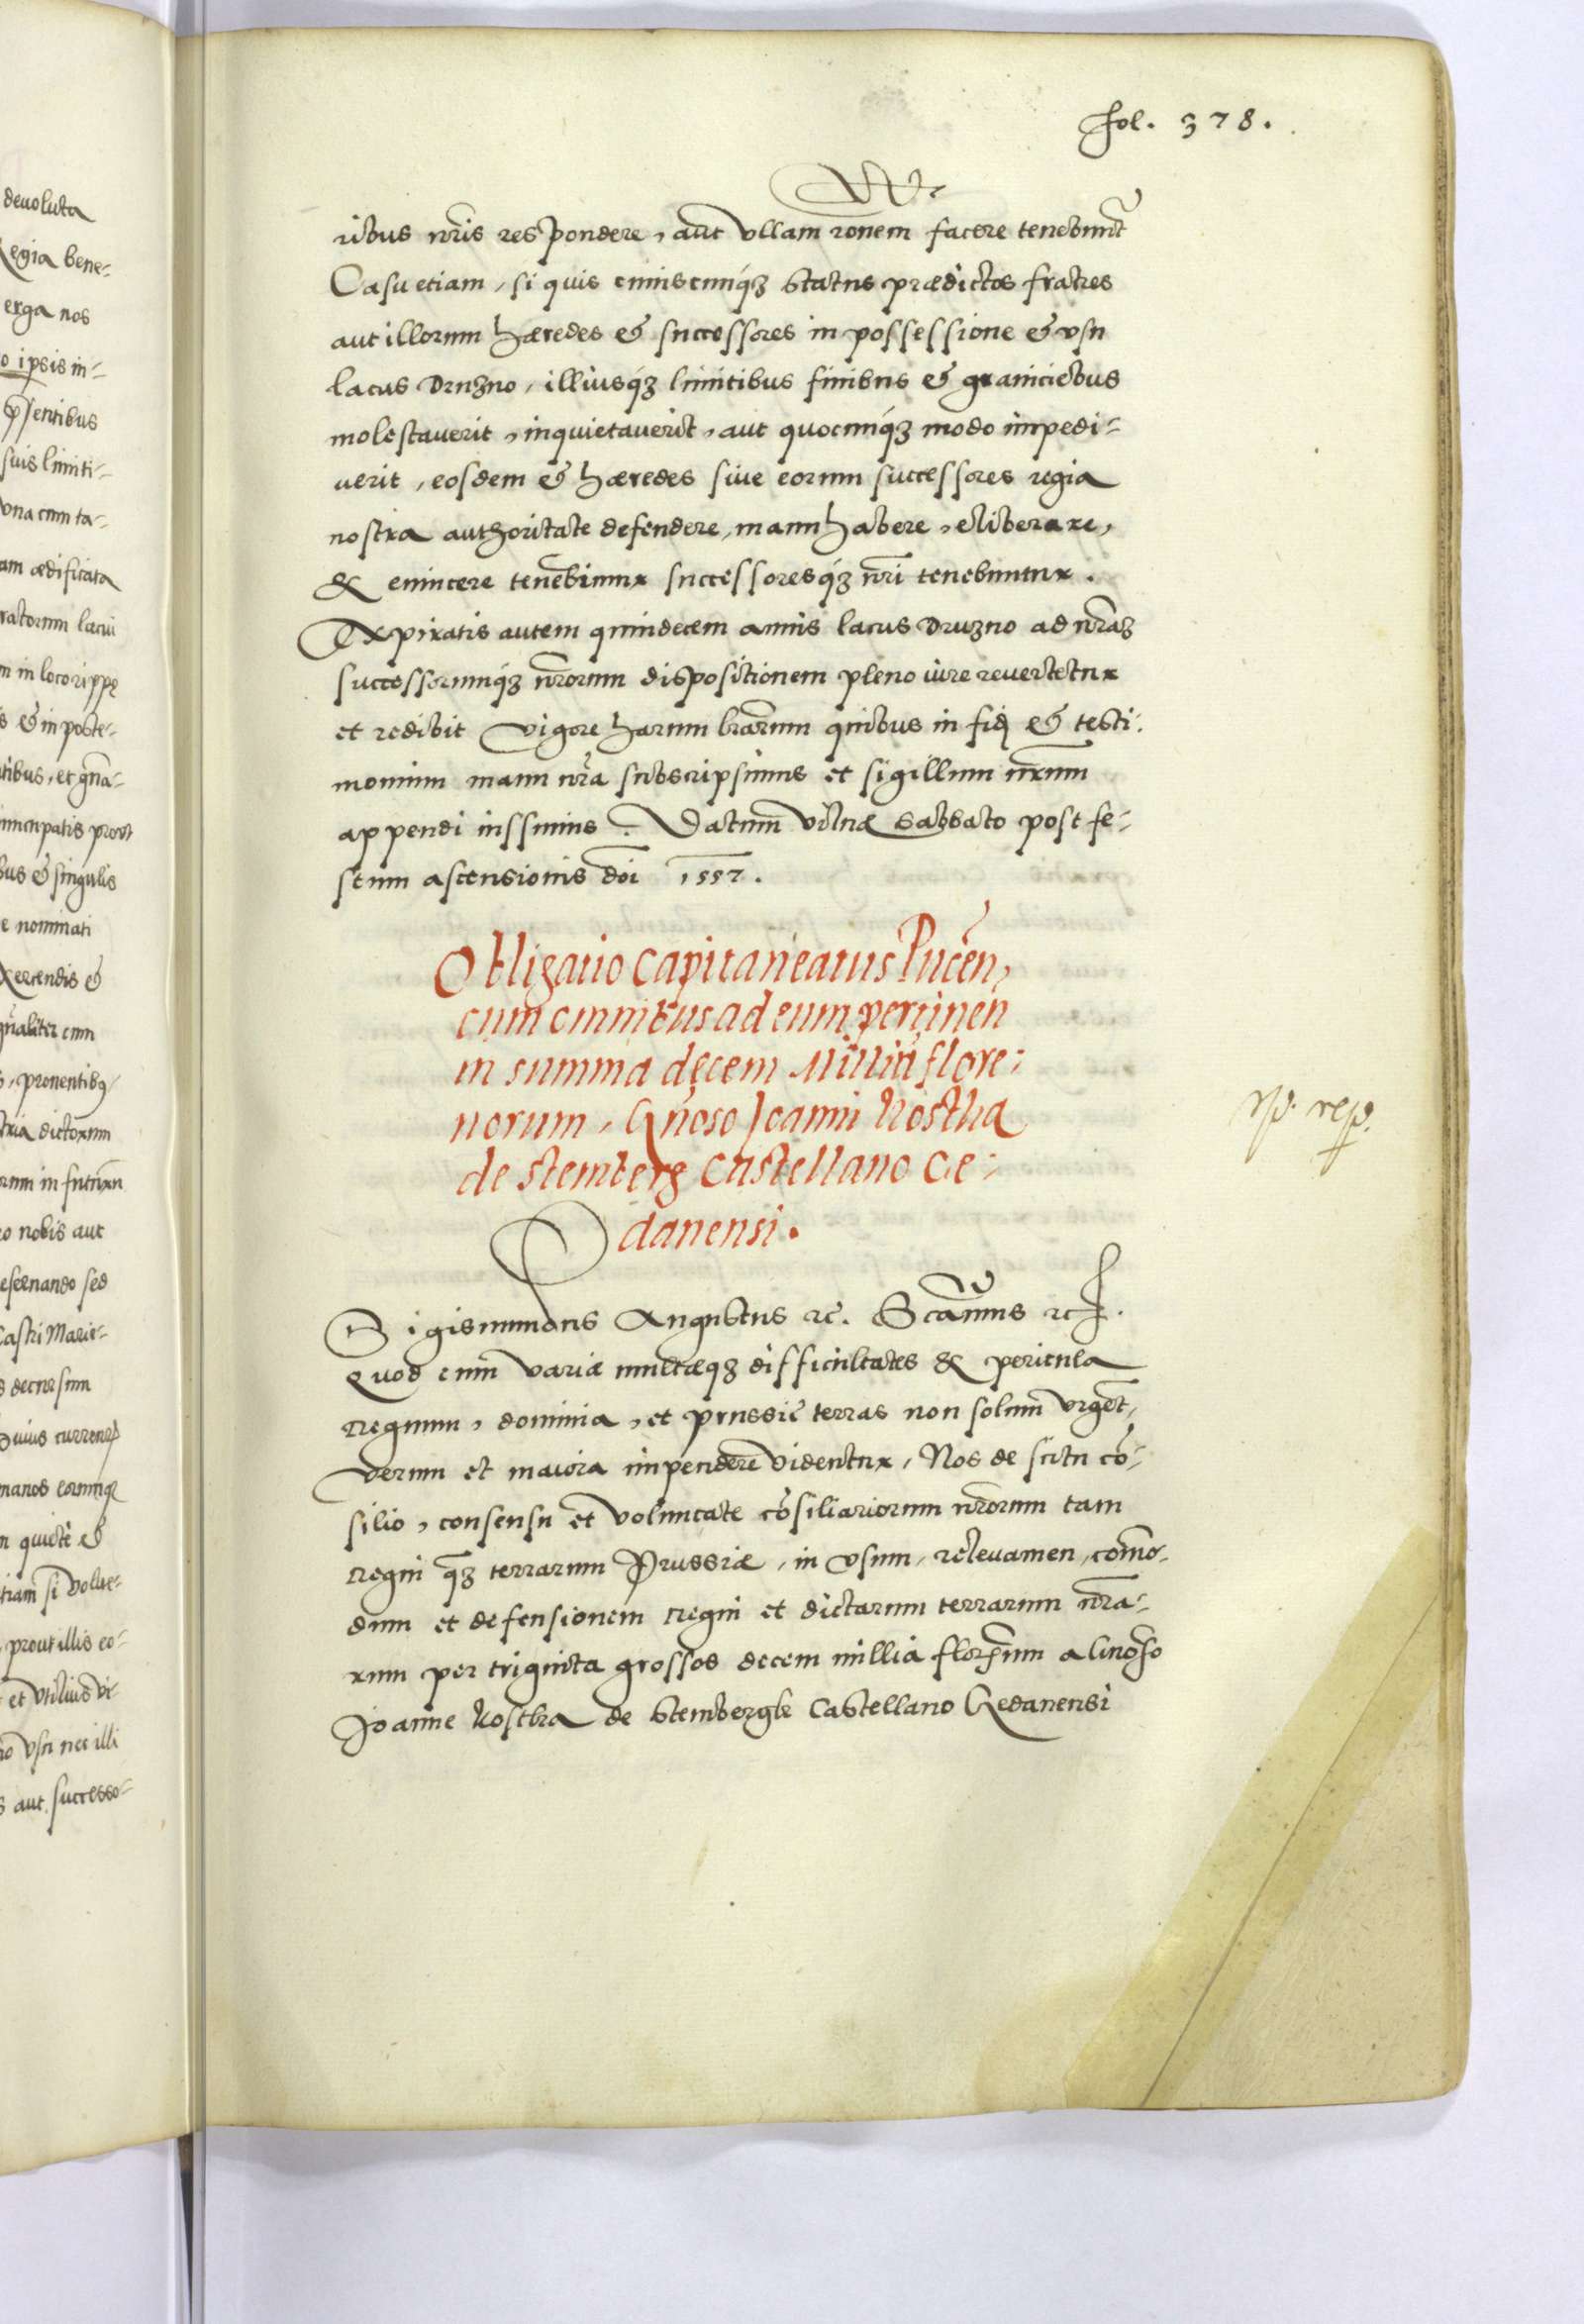 fol. 378.
ribus nr̃is respondere, aut ullam rõnem facere tenebunt̃
Casu etiam, si quis cuiuscunq́ʒ status prædictos fratres
aut illorum hæredes & successores in possessione & usu
lacus Druzno, illiusq́ʒ limitibus finibus & graniciebus
molestaverit, inquietaverit, aut quocunq́ʒ modo impedi-
verit, eosdem & hæredes sive eorum successores regia
nostra authoritate defendere, manuhabere, eliberare,
& evincere tenebimur successoresq́ʒ nr̃i tenebuntur.
Expiratis autem quindecem annis lacus Druzno ad nr̃am
successorumq́ʒ nr̃orum dispositionem pleno iure revertetur
et redibit vigore harum lr̃arum quibus in fid & testi-
monium manu nr̃a subscripsimus et sigillum nr̃um
appendi iussimus. Datum Vilnæ Sabbato post fe-
stum ascensionis dñi 1557.
Obligatio Capitaneatus Pucen,
cum omnibus ad eum pertinen
in summa decem Milliũ flore-
norum, Gñoso Joanni Kostka
de Stemberg Castellano Ge-
danensi.
Sigismundus Augustus ꝛc. Significamus ꝛc
Quod cum variæ multæqʒ difficultates & pericula
regnum, dominia, et prussiæ terras non solum urgent,
verum et maiora impendere videntur, Nos de scitu cõ-
silio, consensu et voluntate cõsiliariorum nr̃orum tam
regni qʒ terrarum Prussiæ, in usum, relevamen, com̃o-
dum et defensionem regni et dictarum terrarum nr̃a-
rum per triginta grossos decem millia flor̃num a Gnoso
Joanne Kostka de Stembergk Castellano Gedanensi
devoluta
Regia bene-
erga nos
o ipsis in-
suis limiti-
una cum ta-
am ædificata
ratorum lacui
m in loco rippę
s & in poste-
tibus, et gñа-
bus & singulis
e nominati
xercendis &
tria dictorum
o nobis aut
Castri Marie-
decursum
n quiete &
tiam si volue-
prout illis co-
et utilius vi-
no usu nec illi
s aut successo-